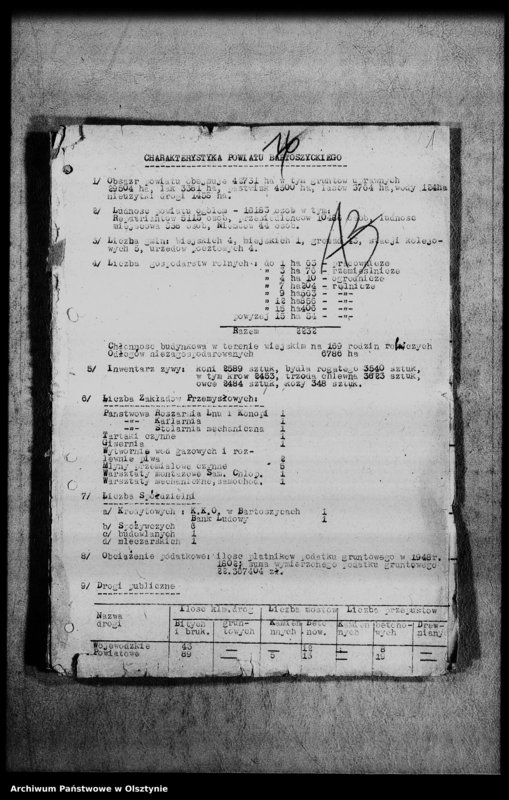 1
CHARAKTERYSTYKA POWIATU BARTOSZYCKIEGO
1/ Obszar powiatu obejmuje 42731 ha w tym gruntów uprawnych
29504 ha, łąk 3381 ha, pastwisk 4500 ha, lasów 3764 ha, wody 124ha
nieużytki drogi 1458 ha.
2/ Ludność powiatu ogółem - 16183 osób w tym:
Repatriantów 5115 osób, przesiedleńców osób, ludność
miejscowa 538 osób, Niemców 44 osób.
3/ Liczba gmin: wiejskich 4, miejskich 1, gromad stacji kolejo-
wych 5, urzędów pocztowych 4.
4/ Liczba gospodarstw rolnych: do 1 ha 63 - pracownicze
" 3 ha 76 - rzemieślnicze
" 4 ha 10 - ogrodnicze
" 7 ha 204 - rolnicze
" 9 ha 563 - -"-
" 12 ha 856 - -"-
" 15 ha 406 - -"-
powyżej 15 ha 54 - -"-
Razem 2232
Chłonność budynkowa w terenie wiejskim na 169 rodzin rolniczych
Odłogów niezagospodarowanych 6786 ha
5/ Inwentarz żywy: koni 2589 sztuk, bydła rogatego 3540 sztuk,
w tym krów 2453, trzoda chlewna 3623 sztuk,
owce 2484 sztuk, kozy 348 sztuk.
6/ Liczba Zakładów Przemysłowych:
Państwowa Roszarnia Lnu i Konopi 1
-"- Kaflarnia 1
-"- Stolarnia mechaniczna 1
Tartaki czynne 1
Gisernia 1
Wytwórnie wód gazowych i roz-
lewnie piwa 2
Młyny przemiałowe czynne 5
Warsztaty montażowe Sam. Chłop. 1
Warsztaty mechaniczne, samochod. 1
7/ Liczba Spółdzielni
a/ Kredytowych : K.K.O. w Bartoszycach 1
Bank Ludowy 1
b/ Spożywczych 6
c/ budowlanych 1
d/ mleczarskich 1
8/ Obciążenie podatkowe: ilość płatników podatku gruntowego w 1948r.
1802; suma wymierzonego podatku gruntowego
22.367404 zł.
9/ Drogi publiczne
Nazwa drogi Ilość klm.dróg Liczba mostów Liczba przepustów
Bitych i bruk. grun- towych Kamien nnych Beto now. Kamien nych betono- wych Drew- niany
Wojewódzkie 43 — — 12 — 8 —
Powiatowe 89 — 5 13 — —
Archiwum Państwowe w Olsztynie